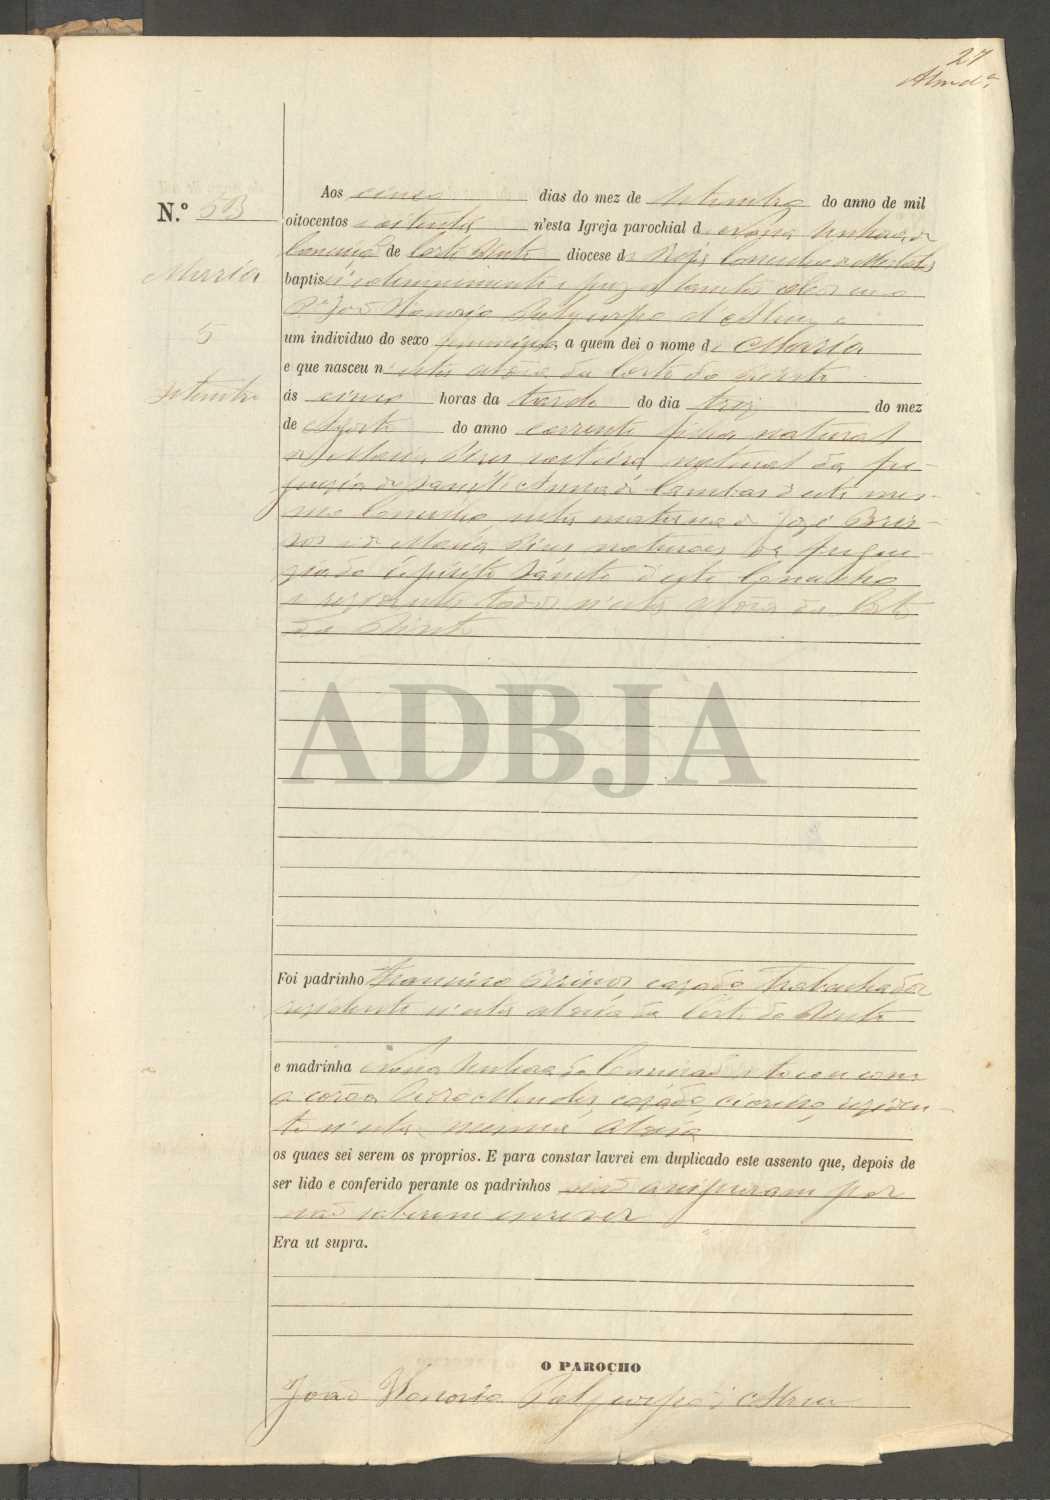 27
Almdª
N.º 53
Maria
5
Setembro
Aos cinco dias do mez de Setembro do anno de mil
oitocentos e oitenta n'esta Igreja parochial d Nossa Senhora da
Conceição de Corte Pinto diocese de Beja Concelho de Mertola
baptisei solemnemente e puz os Santos oleos eu o
Pe João Honorio Polycarpo d'Almeida
um individuo do sexo femenino, a quem dei o nome de Maria
e que nasceu n'esta aldeia da Corte do Pinto
ás cinco horas da tarde do dia trez do mez
de Agosto do anno corrente filha natural
de Maria Pires solteira natural da fre-
guezia de Sanct'Anna de Cambas d'este mes-
mo Concelho neta materna de José Brissos
e de Maria Pires naturaes da fregue-
zia do Espirito Sancto d'este Concelho
e rezidentes todos n'esta aldeia da Corte
do Pinto
ADBJA
Foi padrinho Francisco Brissos cazado trabalhador
rezidente n'esta aldeia da Corte do Pinto
e madrinha Nossa Senhora da Conceição e tocou com
a corôa Pedro Mendes, cazado, reziden-
te n'esta mesma aldeia
os quaes sei serem os proprios. E para constar lavrei em duplicado este assento que, depois de
ser lido e conferido perante os padrinhos não assignaram por
não saberem escrever
Era ut supra.
O PAROCHO
João Honorio Polycarpo d'